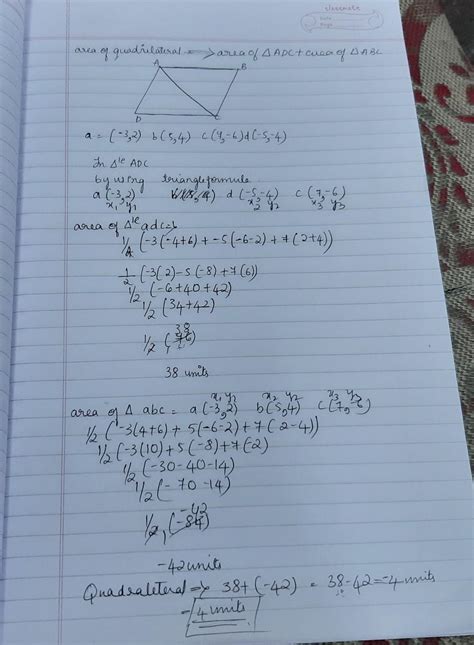 classmate
Date
Page
area of quadrilateral ⟹ area of Δ ADC + area of Δ ABC
A B
D C
a = (-3,2) b(5,4) c(7,-6) d(-5,-4)
In Δle ADC
by using triangle formule
a(-3,2) b(5,4) d(-5,-4) c(7,-6)
x1 y1 x2 y2 x3 y3
area of Δle adc⇒
1/2 (-3(-4+6) + -5(-6-2) + 7(2+4))
1/2 (-3(2) -5(-8) +7(6))
1/2 (-6+40+42)
1/2 (34+42)
38
1/2 (76)
38 units
x1 y1 x2 y2 x3 y3
area of Δ abc = a(-3,2) b(5,4) c(7,-6)
1/2 (-3(4+6) + 5(-6-2) + 7(2-4))
1/2 (-3(10) +5(-8) +7(-2)
1/2 (-30-40-14)
1/2 (-70-14)
-42
1/2 (-84)
-42 units
Quadraleteral ⟹ 38+(-42) = 38-42 = -4 units
= 4 units